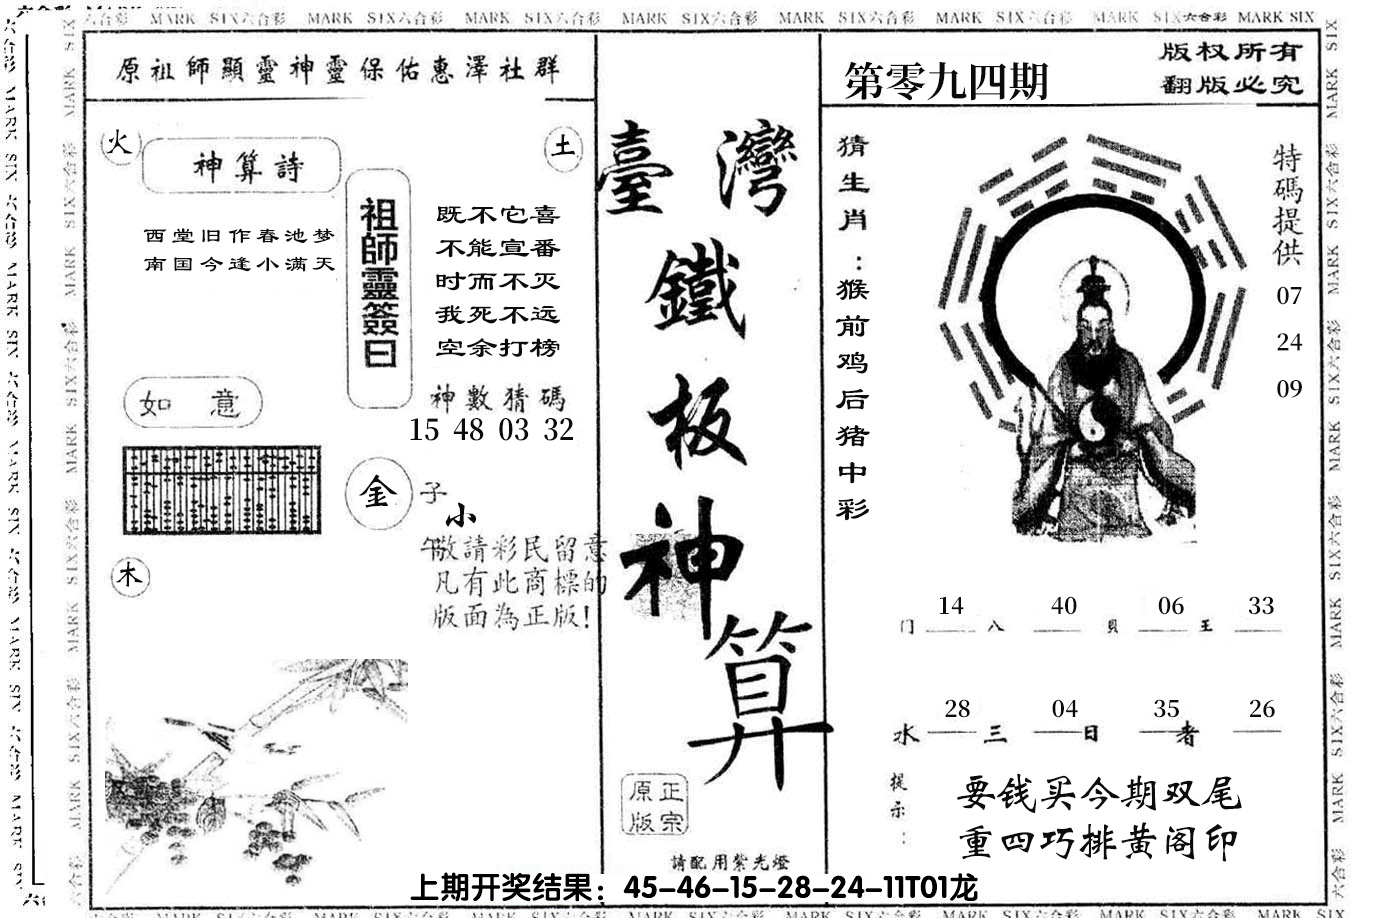 MARK SIX六合彩 MARK SIX六合彩 MARK SIX六合彩 MARK SIX六合彩 MARK SIX六合彩 MARK SIX六合彩 MARK SIX六合彩 MARK SIX
原祖師顯靈神靈保佑惠澤社群
火
神算詩
土
西堂旧作春池梦
南国今逢小满天
祖師靈簽曰
既不它喜
不能宣番
时而不灭
我死不远
空余打榜
神數猜碼
15 48 03 32
如意
金
子
小
午
木
敬請彩民留意
凡有此商標的
版面為正版!
臺灣
鐵
板
神
算
正宗
原版
請配用紫光燈
第零九四期
版权所有
翻版必究
猜生肖:猴前鸡后猪中彩
特碼提供
07
24
09
14 40 06 33
门 八 貝 王
28 04 35 26
水 三 日 者
提示:
要钱买今期双尾
重四巧排黄阁印
上期开奖结果：45-46-15-28-24-11T01龙